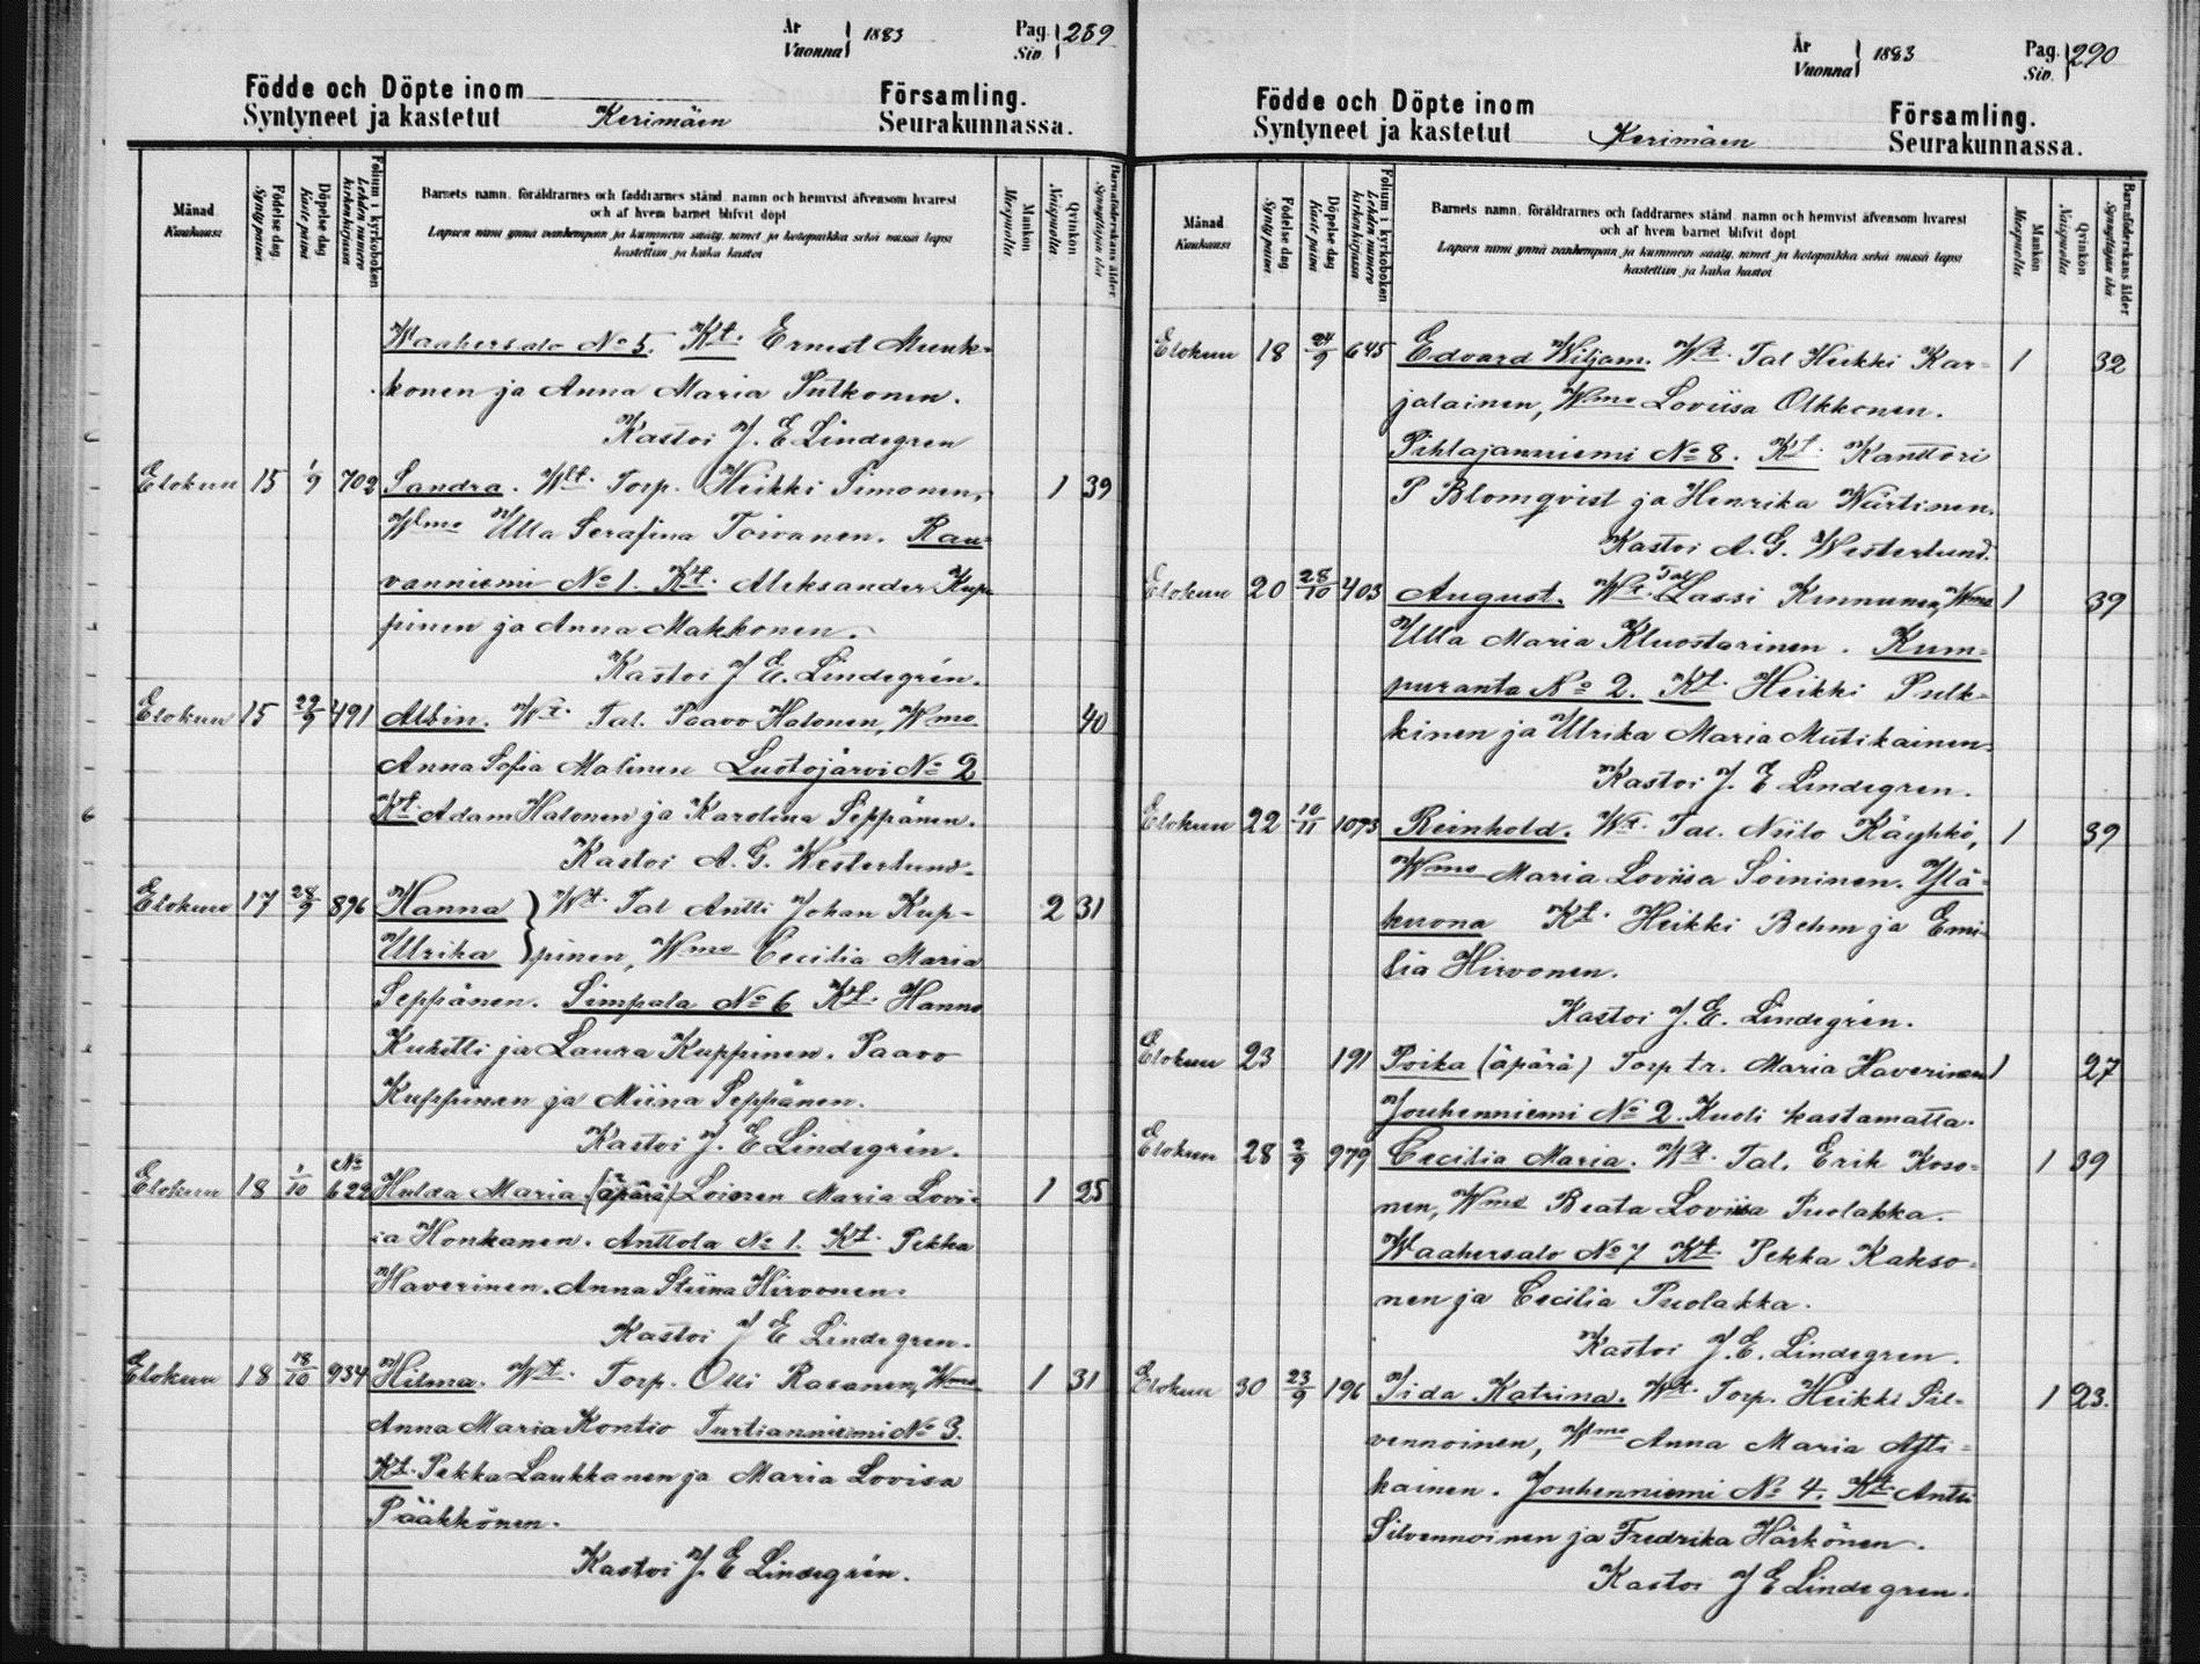 År
Vuonna } 1883
Pag.
Siv. } 289
Födde och Döpte inom Församling.
Syntyneet ja kastetut Kerimäen Seurakunnassa.
Månad
Kuukausi
Födelse dag
Synty päivä
Döpelse dag
Kaste päivä
Folium i kyrkoboken
Lehden numero kirkonkirjassa
Barnets namn, föräldrarnes och faddrarnes stånd, namn och hemvist äfvensom hvarest
och af hvem barnet blifvit döpt
Lapsen nimi ynnä vanhempain ja kummein sääty, nimet ja kotopaikka sekä missä lapsi
kastettiin ja kuka kastoi
Mankön
Miespuolta
Qvinkön
Naispuolta
Barnaföderskans ålder
Synnyttäjän ikä
Waahersalo No 5. Kt. Ernest Munk-
konen ja Anna Maria Putkonen.
Kastoi J. E Lindegren
Elokuu 15 1/9 702 Sandra. Wt. Torp. Heikki Simonen, 1 39
Wmo Ulla Serafina Toivanen. Rau-
vanniemi No 1. Kt. Aleksander Kup-
pinen ja Anna Makkonen.
Kastoi J E. Lindegrén.
Elokuu 15 22/9 491 Albin. Wt. Tal. Paavo Halonen, Wmo 40
Anna Sofia Malinen Lustojärvi No 2
Kt. Adam Halonen ja Karolina Seppänen.
Kastoi A. G. Westerlund.
Elokuu 17 28/9 896 Hanna } Wt. Tal Antti Johan Kup- 2 31
Ulrika } pinen, Wmo Cecilia Maria
Seppänen. Simpala No 6 Kt. Hannu
Kuhitti ja Laura Kuppinen. Paavo
Kuppinen ja Miina Seppänen.
Kastoi J. E Lindegrén.
Elokuu 18 1/10 No 622 Hulda Maria (äpärä) Loisren Maria Lovi- 1 25
sa Honkanen. Anttola No 1. Kt. Pekka
Haverinen. Anna Stiina Hirvonen.
Kastoi J E Lindegren.
Elokuu 18 18/10 934 Hilma. Wt. Torp. Olli Rasanen, Wmo 1 31
Anna Maria Kontio Turtianniemi No 3.
Kt. Pekka Laukkanen ja Maria Lovisa
Pääkkönen.
Kastoi J. E Lindegrén.
År
Vuonna } 1883
Pag.
Siv. } 290
Födde och Döpte inom Församling.
Syntyneet ja kastetut Kerimäen Seurakunnassa.
Månad
Kuukausi
Födelse dag
Synty päivä
Döpelse dag
Kaste päivä
Folium i kyrkoboken
Lehden numero kirkonkirjassa
Barnets namn, föräldrarnes och faddrarnes stånd, namn och hemvist äfvensom hvarest
och af hvem barnet blifvit döpt
Lapsen nimi ynnä vanhempain ja kummein sääty, nimet ja kotopaikka sekä missä lapsi
kastettiin ja kuka kastoi
Mankön
Miespuolta
Qvinkön
Naispuolta
Barnaföderskans ålder
Synnyttäjän ikä
Elokuu 18 24/9 645 Edvard Wiljam. Wt. Tal Heikki Kar- 1 32
jalainen, Wmo Loviisa Olkkonen.
Pihlajanniemi No 8. Kt. Kanttori
P Blomqvist ja Henrika Närtinen.
Kastoi A. G. Westerlund.
Elokuu 20 28/10 403 August. Wt. Tal Lassi Kinnunen, Wmo 1 39
Ulla Maria Kluostarinen. Kum-
puranta No 2. Kt. Heikki Pulk-
kinen ja Ulrika Maria Mutikainen.
Kastoi J. E Lindegren.
Elokuu 22 10/11 1093 Reinhold. Wt. Tal. Niilo Käyhkö, 1 39
Wmo Maria Loviisa Soininen. Ylä-
kuona Kt. Heikki Behm ja Emi-
lia Hirvonen.
Kastoi J. E. Lindegrén.
Elokuu 23 191 Poika (äpärä) Torp tr. Maria Haverinen 1 27
Jouhenniemi No 2. Kuoli kastamatta.
Elokuu 28 2/9 979 Cecilia Maria. Wt. Tal. Erik Koso- 1 39
nen, Wmo Beata Loviisa Puolakka.
Waahersalo No 7 Kt. Pekka Kakso-
nen ja Cecilia Puolakka.
Kastoi J. E. Lindegren.
Elokuu 30 23/9 196 Iida Katrina. Wt. Torp. Heikki Sil- 1 23.
vennoinen, Wmo Anna Maria
kainen. Jouhenniemi No 4. Kt. Antti
Silvennoinen ja Fredrika Härkönen.
Kastoi J E Lindegren.